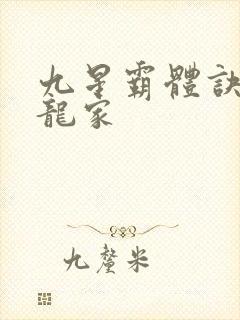 九星霸體訣
龍家
九釐米